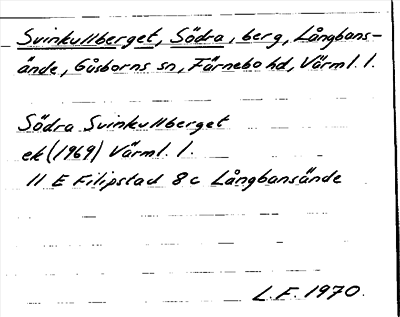 Svinkullberget, Södra, berg, Långbans-
ände, Gåsborns sn, Färnebo hd, Värml. l.
Södra Svinkullberget
ek (1969) Värml. l.
11 E Filipstad 8 c Långbansände
L.F. 1970.